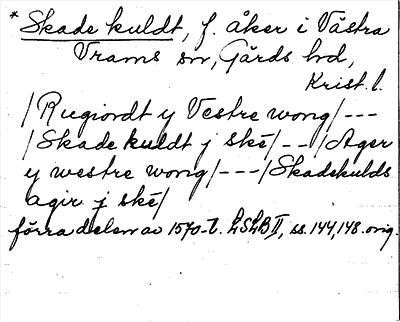 * Skade kuldt, f. åker i Västra
Vrams sn, Gärds hd,
Krist. l.
/Rugiordt y Vestre wong/---
/Skade kuldt j skě/--/Ager
y westre wong/---/Skadekulds
agir j skě/
förra delen av 1570-t. LSLB II, ss. 144, 148. orig.